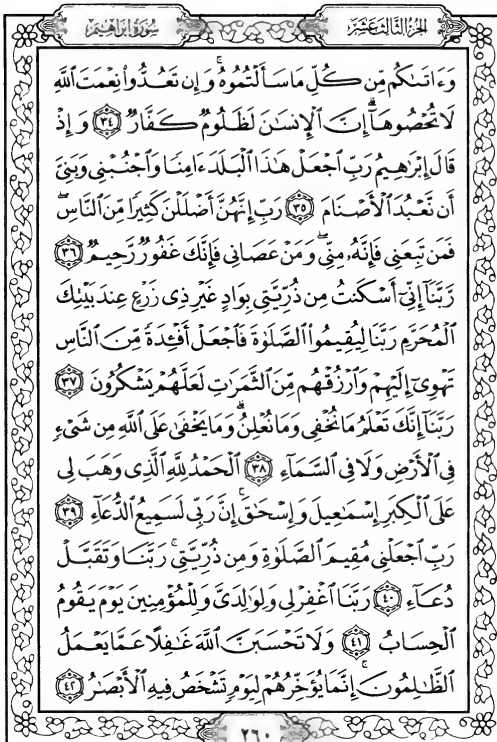 سورة إبراهيم
الجزء الثالث عشر
وَءَاتَىٰكُم مِّن كُلِّ مَا سَأَلْتُمُوهُ ۚ وَإِن تَعُدُّوا۟ نِعْمَتَ ٱللَّهِ
لَا تُحْصُوهَآ ۗ إِنَّ ٱلْإِنسَٰنَ لَظَلُومٌ كَفَّارٌ ٣٤ وَإِذْ
قَالَ إِبْرَٰهِيمُ رَبِّ ٱجْعَلْ هَٰذَا ٱلْبَلَدَ ءَامِنًا وَٱجْنُبْنِى وَبَنِىَّ
أَن نَّعْبُدَ ٱلْأَصْنَامَ ٣٥ رَبِّ إِنَّهُنَّ أَضْلَلْنَ كَثِيرًا مِّنَ ٱلنَّاسِ ۖ
فَمَن تَبِعَنِى فَإِنَّهُۥ مِنِّى ۖ وَمَنْ عَصَانِى فَإِنَّكَ غَفُورٌ رَّحِيمٌ ٣٦
رَّبَّنَآ إِنِّىٓ أَسْكَنتُ مِن ذُرِّيَّتِى بِوَادٍ غَيْرِ ذِى زَرْعٍ عِندَ بَيْتِكَ
ٱلْمُحَرَّمِ رَبَّنَا لِيُقِيمُوا۟ ٱلصَّلَوٰةَ فَٱجْعَلْ أَفْـِٔدَةً مِّنَ ٱلنَّاسِ
تَهْوِىٓ إِلَيْهِمْ وَٱرْزُقْهُم مِّنَ ٱلثَّمَرَٰتِ لَعَلَّهُمْ يَشْكُرُونَ ٣٧
رَبَّنَآ إِنَّكَ تَعْلَمُ مَا نُخْفِى وَمَا نُعْلِنُ ۗ وَمَا يَخْفَىٰ عَلَى ٱللَّهِ مِن شَىْءٍ
فِى ٱلْأَرْضِ وَلَا فِى ٱلسَّمَآءِ ٣٨ ٱلْحَمْدُ لِلَّهِ ٱلَّذِى وَهَبَ لِى
عَلَى ٱلْكِبَرِ إِسْمَٰعِيلَ وَإِسْحَٰقَ ۚ إِنَّ رَبِّى لَسَمِيعُ ٱلدُّعَآءِ ٣٩
رَبِّ ٱجْعَلْنِى مُقِيمَ ٱلصَّلَوٰةِ وَمِن ذُرِّيَّتِى ۚ رَبَّنَا وَتَقَبَّلْ
دُعَآءِ ٤٠ رَبَّنَا ٱغْفِرْ لِى وَلِوَٰلِدَىَّ وَلِلْمُؤْمِنِينَ يَوْمَ يَقُومُ
ٱلْحِسَابُ ٤١ وَلَا تَحْسَبَنَّ ٱللَّهَ غَٰفِلًا عَمَّا يَعْمَلُ
ٱلظَّٰلِمُونَ ۚ إِنَّمَا يُؤَخِّرُهُمْ لِيَوْمٍ تَشْخَصُ فِيهِ ٱلْأَبْصَٰرُ ٤٢
٢٦٠